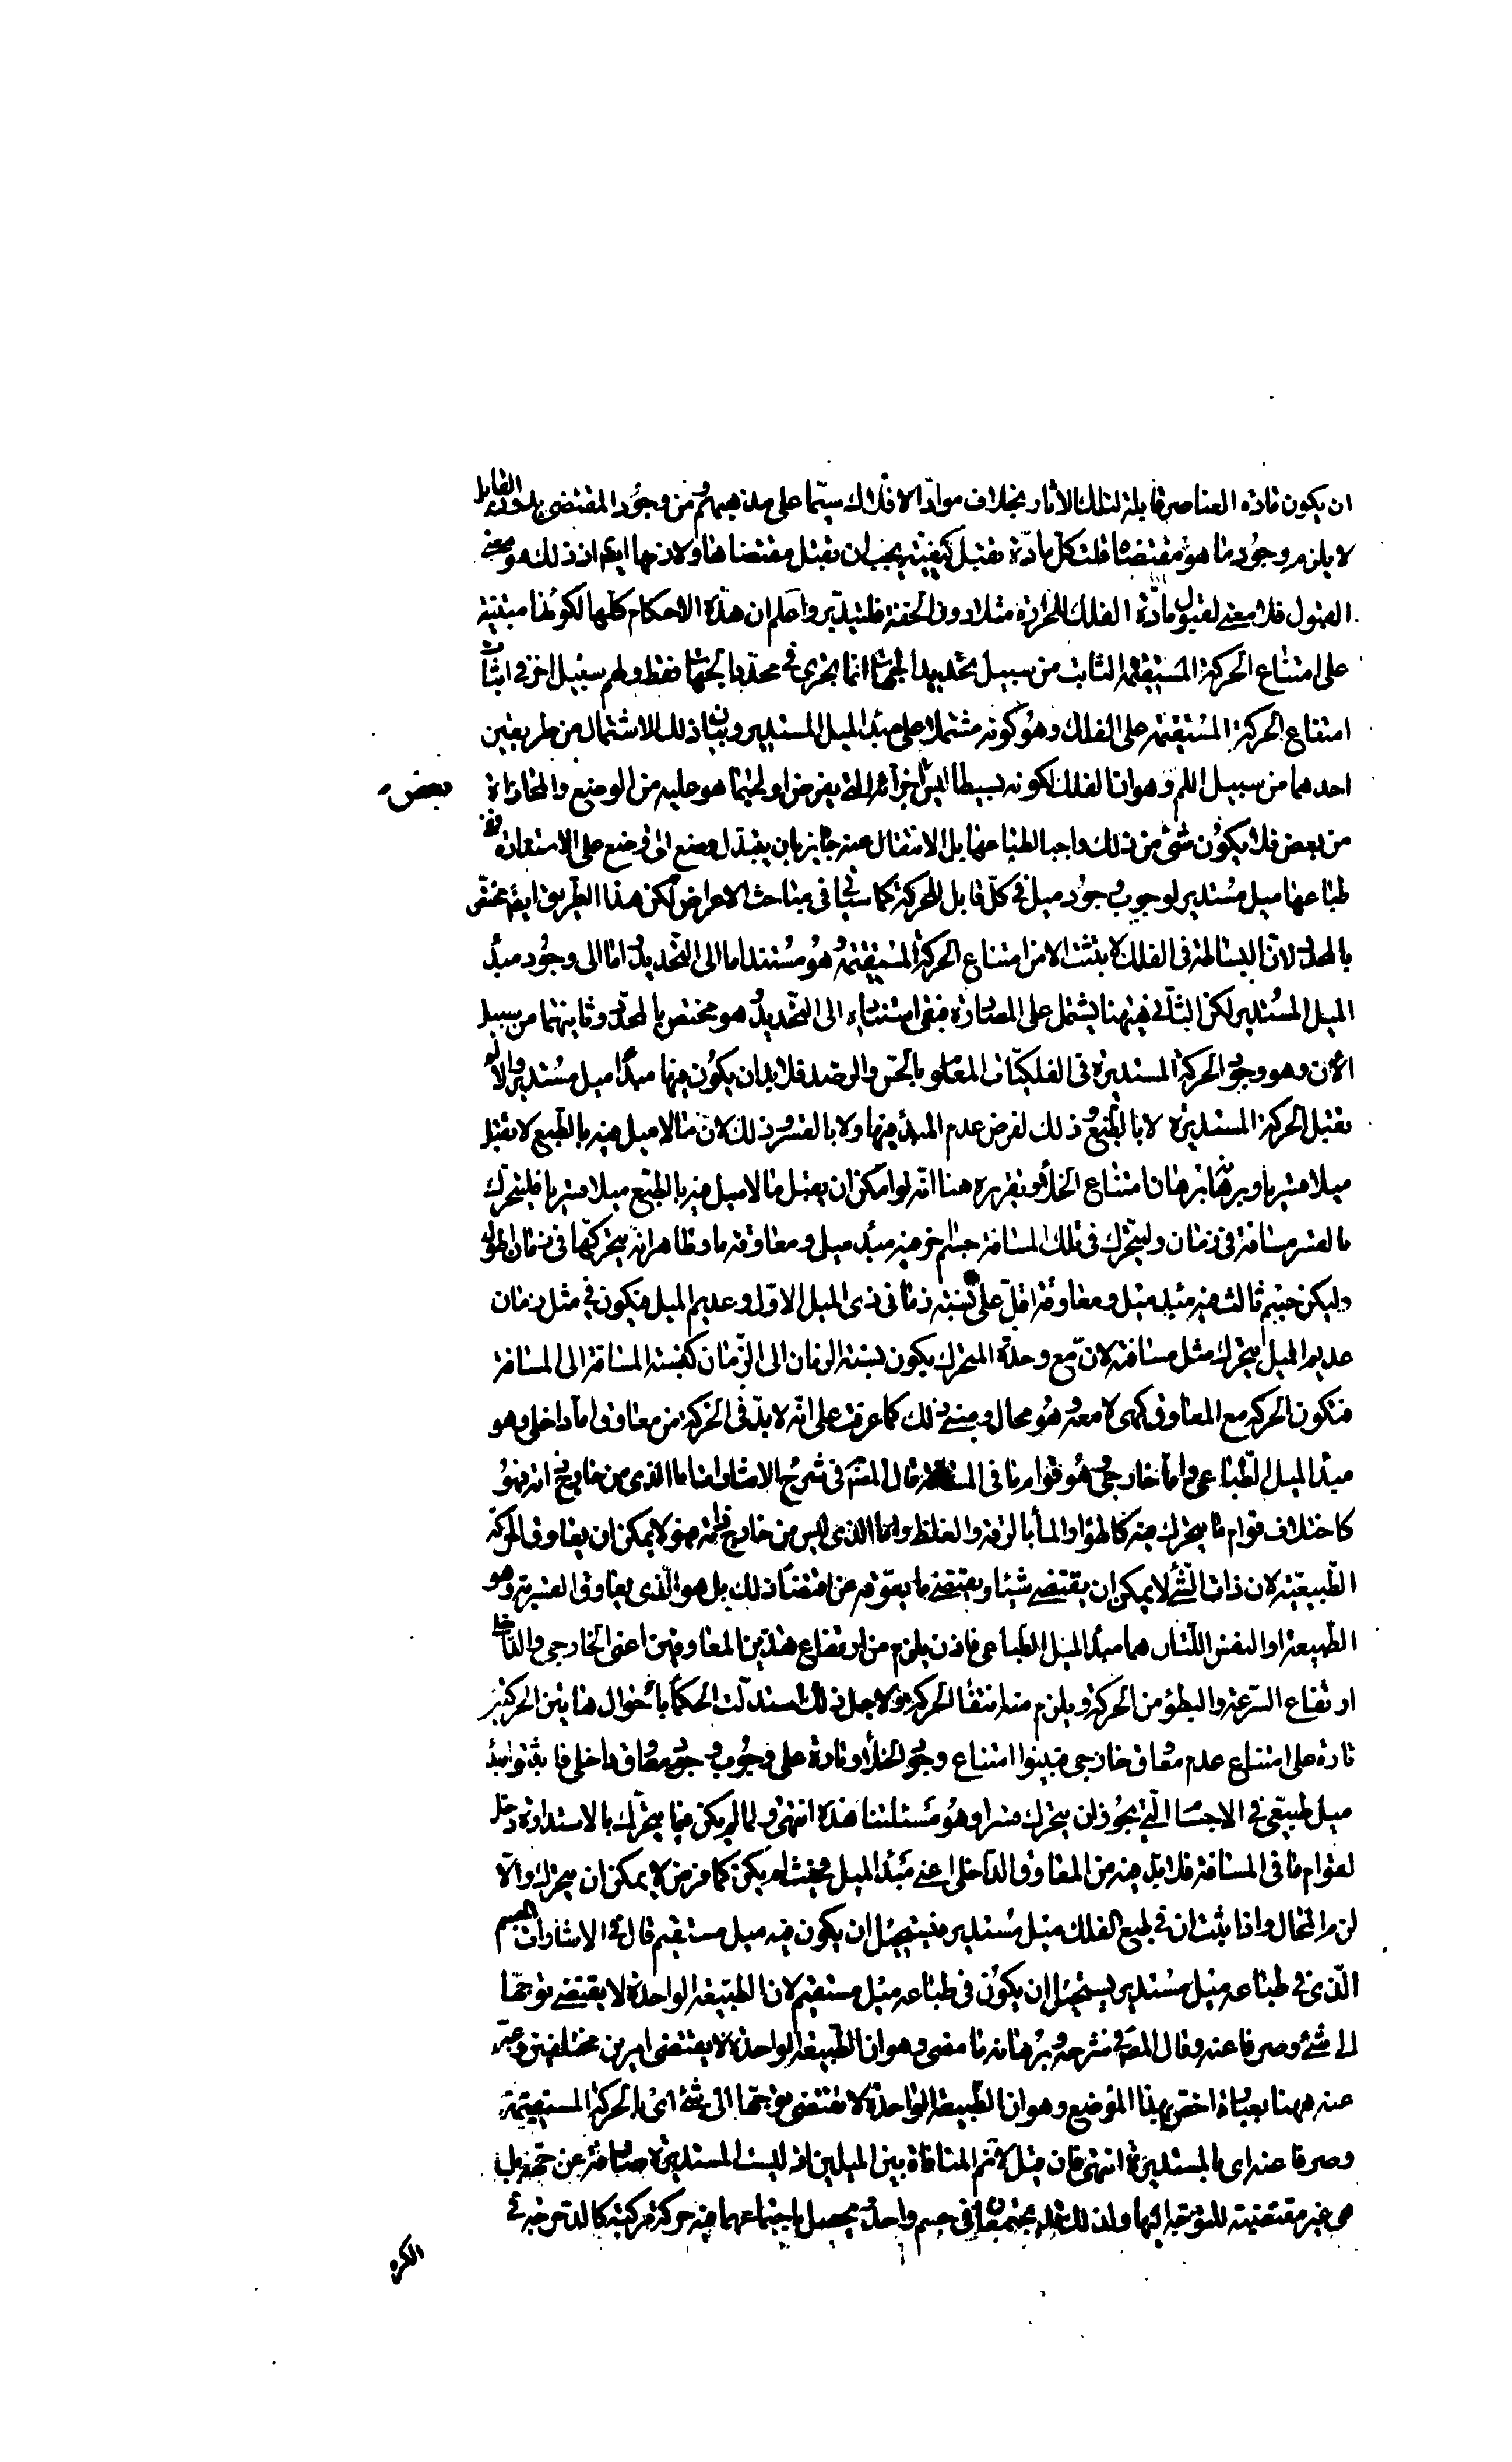 ان يكون مادة العناصر قابلة لتلك الاثار بخلاف موادّ الافلاك سيّما على مذهبهم من وجود المقتضى بدون القابل
لا يلزم وجود ما هو مقتضاه قلت كلّ مادّة تقبل كيفيّة يجب ان تقبل مقتضاها ولازمها ايضا اذ ذلك هو معنى
القبول فلا معنى لقبول مادّة الفلك للحرارة مثلا دون الخفة فليتدبّر واعلم ان هذه الاحكام كلّها لكونها مبتنية
على امتناع الحركة المستقيمة الثابت من سبيل تحديد الجهات انما يجرى فى محدّد الجهات فقط ولهم سبيل اخر فى اثبات
امتناع الحركة المستقيمة على الفلك وهو كونه مشتملا على مبدأ الميل المستدير وبيان ذلك الاشتمال من طريقين
احدهما من سبيل اللم وهو ان الفلك لكونه بسيطا ليس اجزائه التى يفرض اولى بما هو عليه من الوضع والمحاذاة بعض
من بعض فلا يكون شىء من ذلك واجبا لطباعها بل الانتقال عنه جايز بان يتبدل وضع الى وضع على الاستدارة ففى
طباعها ميل مستدير لوجوب وجود ميل فى كلّ قابل للحركة كما سياتى فى مباحث الاعراض لكن هذا الطريق ايضا مختص
بالمحدّد لانّ البساطة فى الفلك لا يثبت الا من امتناع الحركة المستقيمة وهو مستند اما الى التحديد واما الى وجود مبدأ
الميل المستدير لكن الثانى فيما هنا يشتمل على المصادرة فبقى استناده الى التحديد وهو مختص بالمحدّد وثانيهما من سبيل
الانّ وهو وجود الحركة المستديرة فى الفلكيّات المعلوم بالحس والرصد فلا بد ان يكون فيها مبدأ ميل مستدير والا لم
تقبل الحركة المستديرة لا بالطبع وذلك لفرض عدم المبدأ فيها ولا بالقسر وذلك لانّ ما لا ميل فيه بالطبع لا يقبل
ميلا قسريا وبرهانه برهان امتناع الخلأ وتقريره هنا انّه لو امكن ان يقبل ما لا ميل فيه بالطبع ميلا قسريا فليتحرّك
بالقسر مسافة فى زمان وليتحرّك فى تلك المسافة جسم اخر فيه مبدأ ميل ومعاوقة ما وظاهر انه يتحركها فى زمان اطول
وليكن جسم ثالث فيه مبدأ ميل ومعاوقة اقلّ على نسبة زمانى ذى الميل الاوّل وعديم الميل فيكون فى مثل زمان
عديم الميل يتحرك مثل مسافته لانّ مع وحدة المتحرك يكون نسبة الزمان الى الزّمان كنسبة المسافة الى المسافة
فتكون الحركة مع المعاوق كهى لا معه وهو محال ومبنى ذلك كما عرفت على انّه لا بدّ فى الحركة من معاوق اما داخلى وهو
مبدأ الميل الطباعى واما خارجى وهو قوام ما فى المسافة قال المصنف فى شرح الاشارات اما الذى من خارج فهو
كاختلاف قوام ما يتحرك فيه كالهواء والماء بالرقة والغلظ واما الذى ليس من خارج فهو لا يمكن ان يعاوق الحركة
الطبيعية لان ذات الشىء لا يمكن ان يقتضى شيئا ويقتضى ما يعوّقه عن اقتضاء ذلك بل هو الّذى يعاوق القسرية وهو
الطبيعة او النفس اللتان هما مبدأ الميل الطباعى فاذن يلزم من ارتفاع هذين المعاوقين اعنى الخارجى والداخلى
ارتفاع السرعة والبطؤ من الحركة ويلزم منه انتفاء الحركة ولاجل ذلك استدلّت الحكماء باحوال هاتين الحركتين
تارة على امتناع عدم معاوق خارجى فبيّنوا امتناع وجود الخلأ وتارة على وجوب وجود معاوق داخلى فاثبتوا مبدأ
ميل طبيعى فى الاجسام الّتى يجوز ان يتحرك قسرا وهو مسئلتنا هذه انتهى ولما لم يكن فيما يتحرّك بالاستدارة دخل
لقوام ما فى المسافة فلا بدّ فيه من المعاوق الداخلى اعنى مبدأ الميل فحيث لم يكن كما فرض لا يمكن ان يتحرك والّا
لزم المحال واذا ثبت ان فى طبع الفلك ميل مستدير فيستحيل ان يكون فيه ميل مستقيم قال فى الاشارات الجسم
الّذى فى طباعه ميل مستدير يستحيل ان يكون فى طباعه ميل مستقيم لان الطبيعة الواحدة لا يقتضى توجّها
الى شىء وصرفا عنه وقال المصنف فى شرحه وبرهانه ما مضى وهو ان الطبيعة الواحدة لا يقتضى امرين مختلفين وعبّر
عنه ههنا بعبارة اختصّ بهذا الموضع وهو ان الطبيعة الواحدة لا تقتضى توجّها الى شىء اى بالحركة المستقيمة
وصرفا عنه اى بالمستديرة انتهى فان قيل لا نم المنافاة بين الميلين اذ ليست المستديرة صارفة عن جهة بل
هى غير مقتضية للتوجّه اليها ولذلك قد يجتمعان فى جسم واحد يحصل باجتماعهما فيه حركة مركبة كالدحرجة فى
الكرة